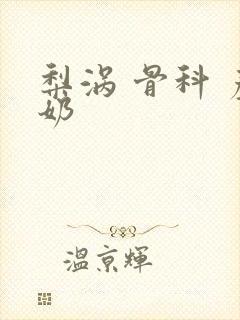 梨涡 骨科
奶
溫京輝